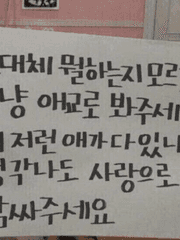 대체 뭘하는지 모르
냥 애교로 봐주세
저런 애가 다 있
각나도 사랑으로
싸주세요